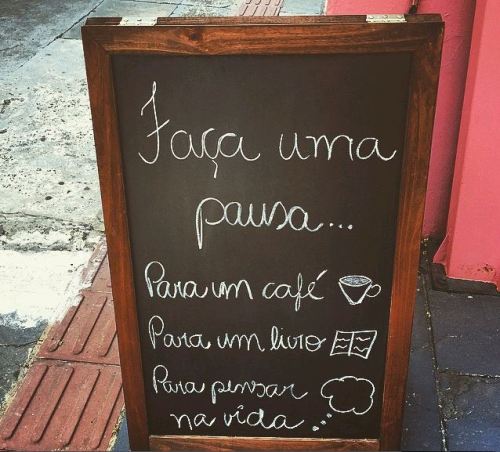 Faça uma
pausa...
Para um café
Para um livro
Para pensar
na vida...